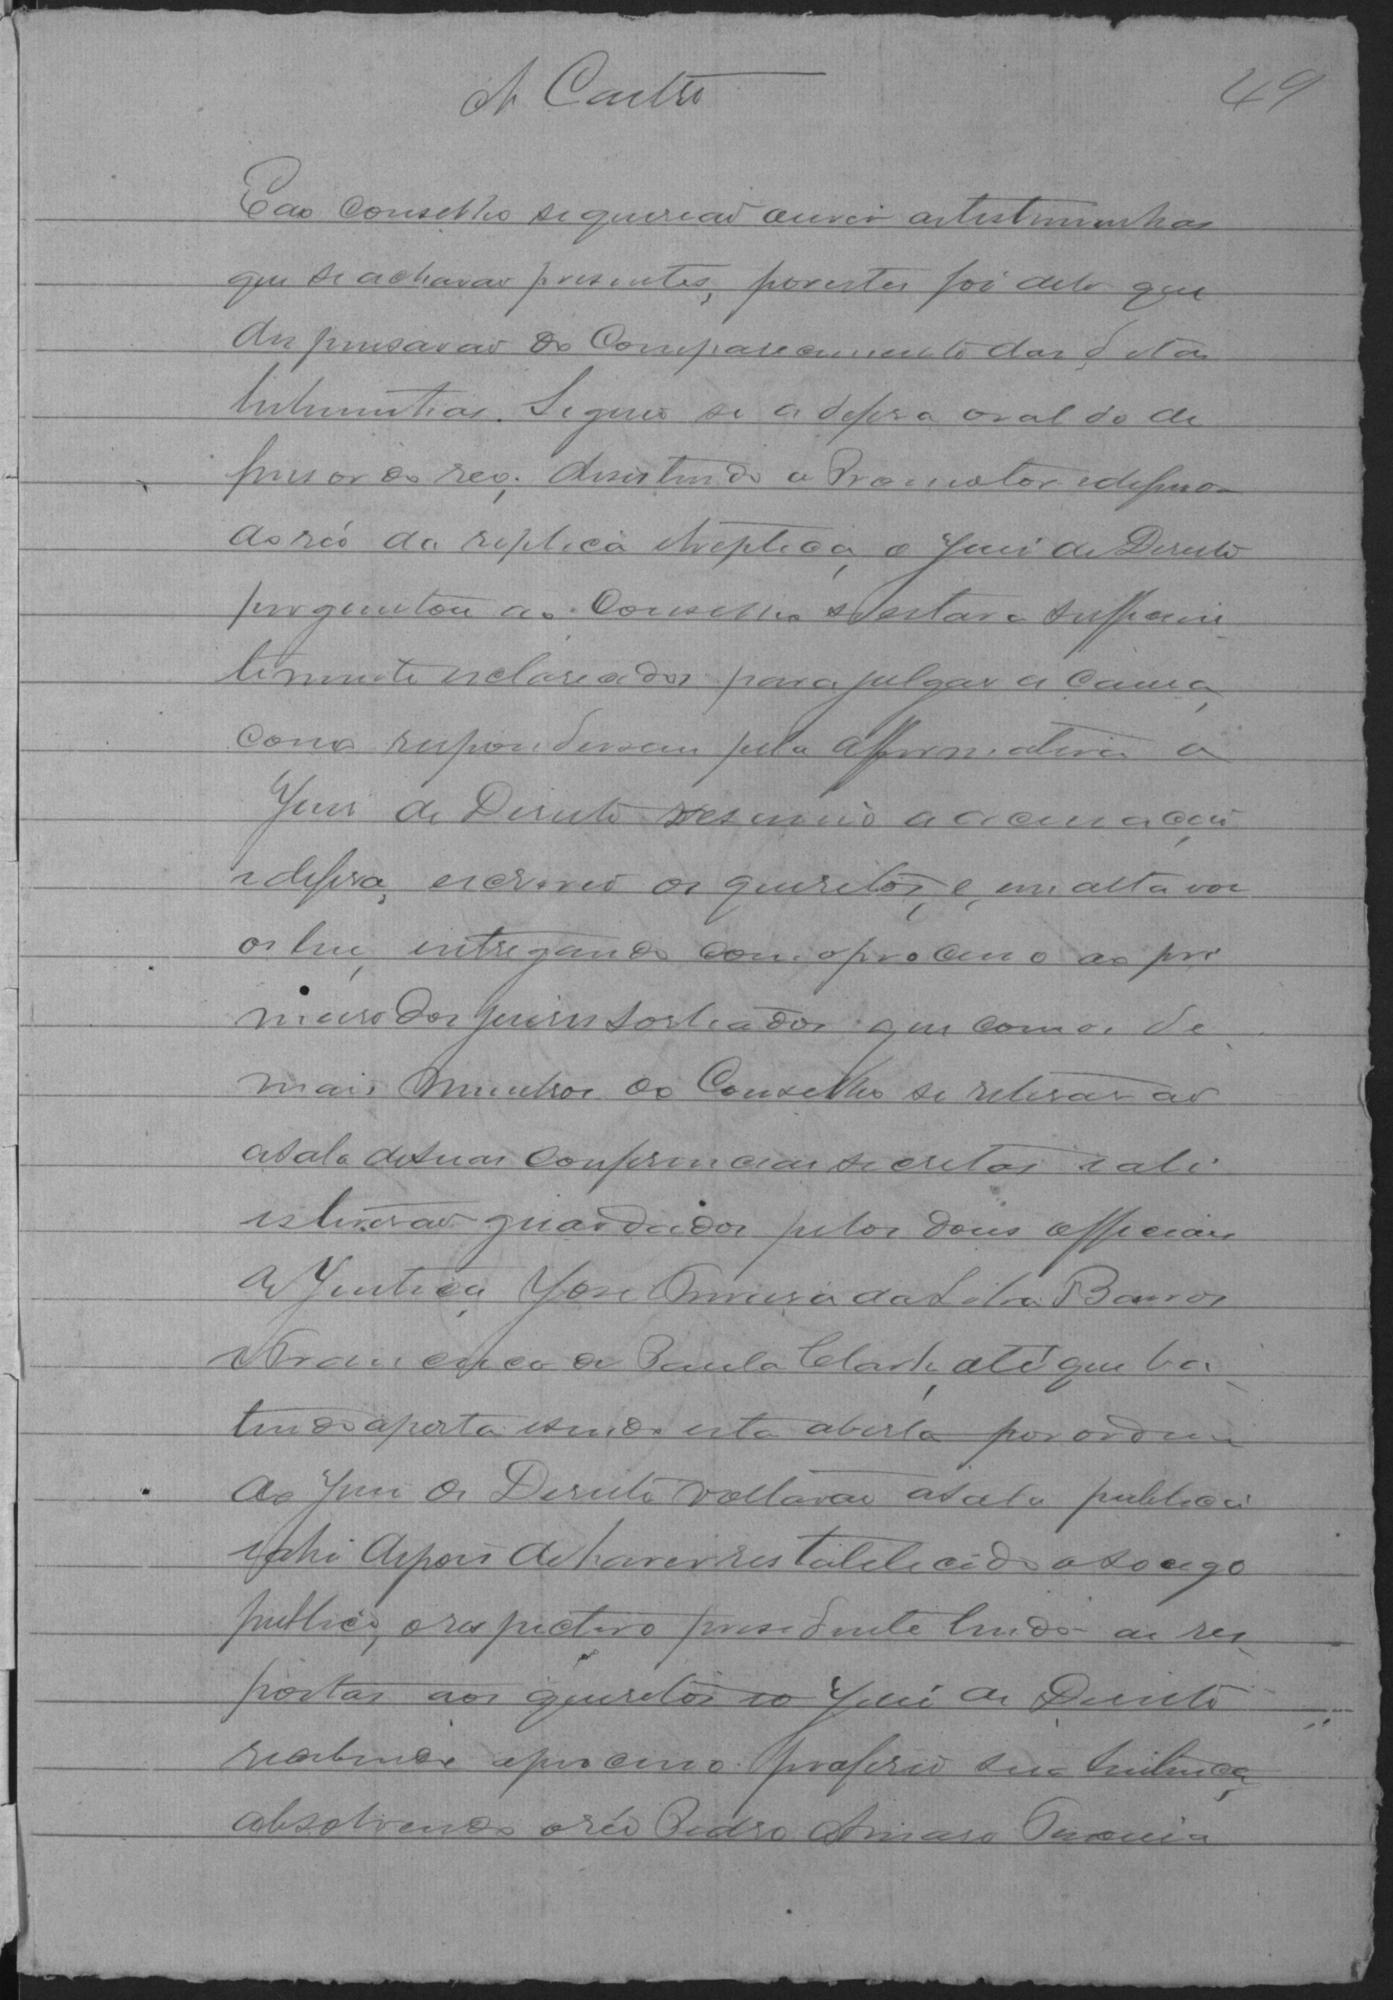 A Castro
49
E ao conselho se querião ouvir as testimunhas
que se achavão presentes, por estes foi dito que
dispensavão o comparecimento das ditas
testemunhas. Seguio se a defesa oral do de
fensor do reo; desistindo o Promotor e defensor
do réo da replica e treplica, o Juiz de Direito
perguntou ao Conselho se estava sufficien
temente esclarecidos para julgar a causa,
como respondessem pela affirmativa o
Juiz de Direito resumio a accusação
e defesa, escreveo os quesitos, e, em alta voz
os leu, entregando com o processo ao pri
meiro dos juises sorteados que com os de
mais membros do Conselho se retirarão
a sala de suas conferencias secretas e ali
estiverão guardados pelos dous officiaes
de Justiça José da Silva Barros
e Francisco de Paula até que ba
tendo a porta e sendo esta aberta por ordem
do Juiz de Direito voltarão a sala publica
e ahi depois de haver restabelecido o socego
publico, o respectivo presidente lendo as res
postas aos quesitos e o Juiz de Direito
recebendo o processo proferio sua sentença,
absolvendo o réo Pedro Amaro